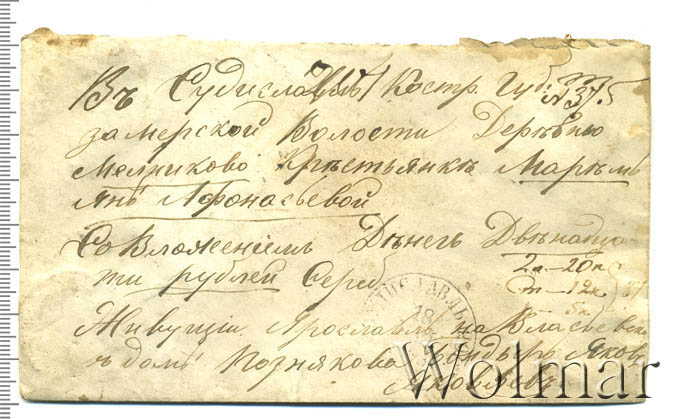 Въ Судиславль Костр. Губ.
замерской Волости Деревню
Мелниково Крестьянкѣ Марѣмь
янѣ Афонасьевой
Со Вложениемъ Дѣнегъ Двѣнадца
ти рублей Сереб
2 л - 20 к
12 к
5 к
Живущій Ярославлѣ на Власьевско
ъ домѣ Познякова Яков
Яковлевъ
Wolmar